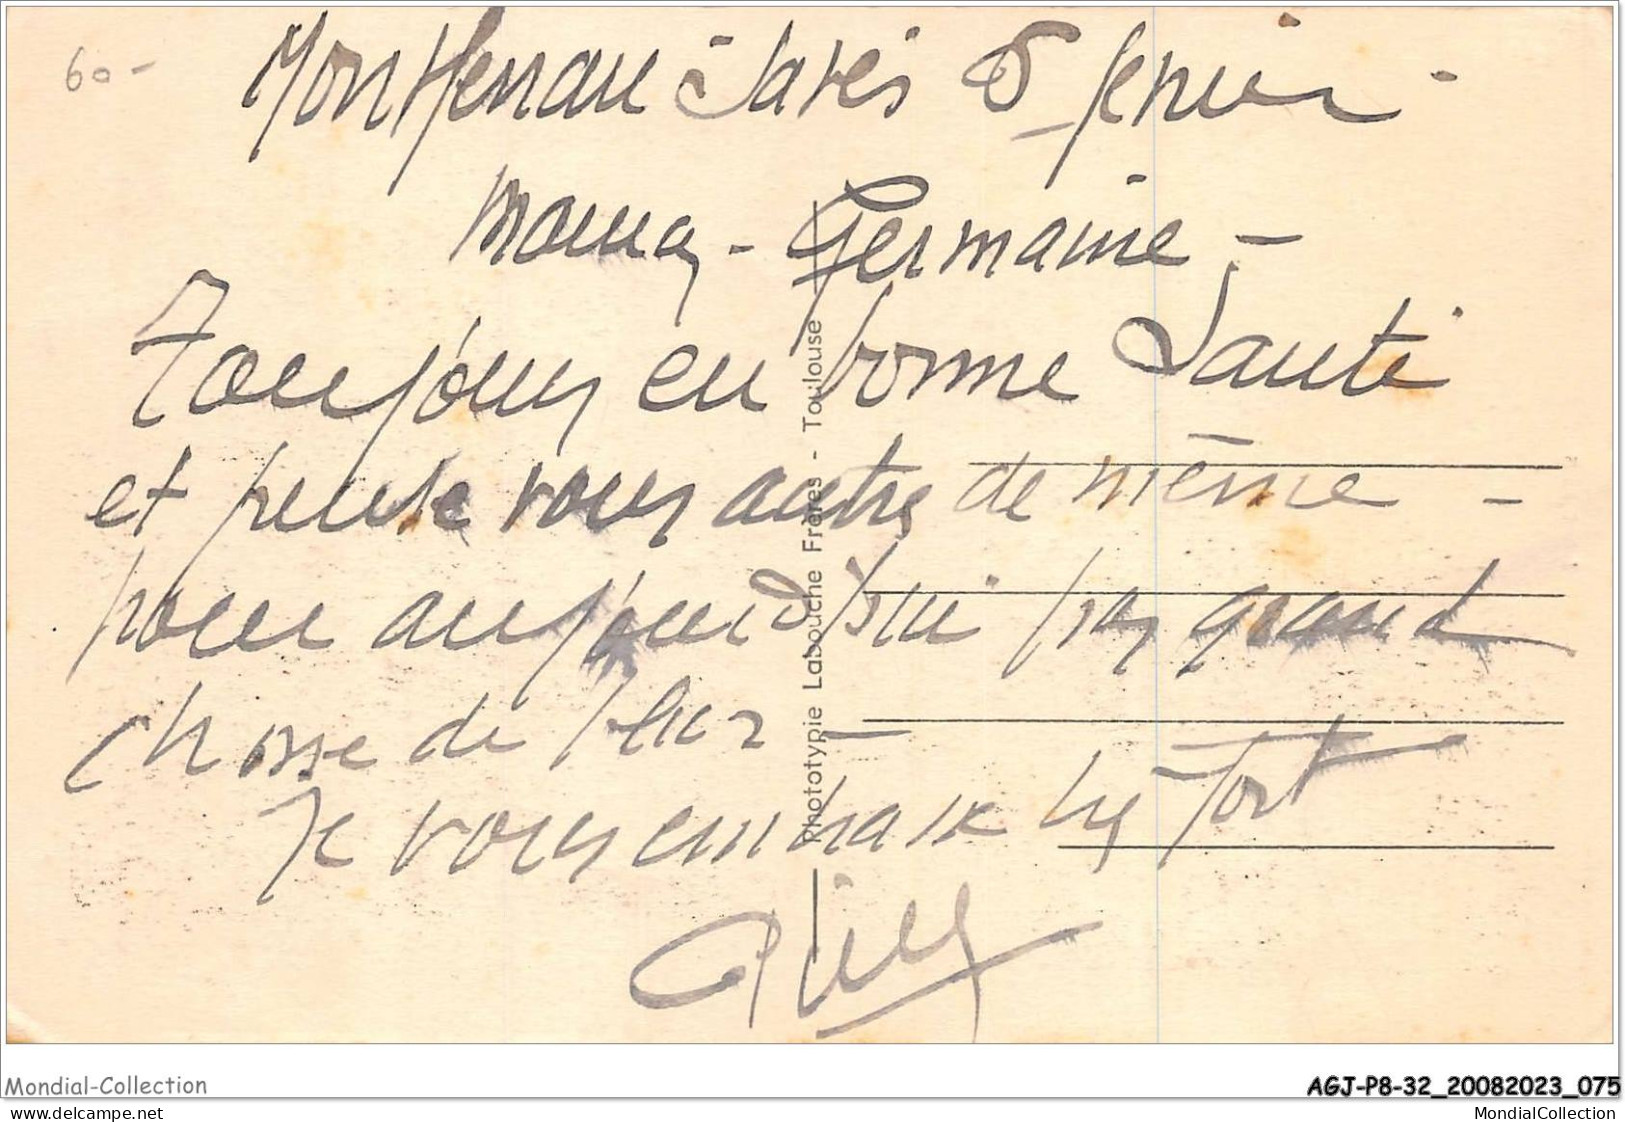 60 -
Montferran-Savès 5 Février -
Maman - Germaine -
Toujours en bonne Santé
et pense vous autres de même -
pour aujourd'hui pas grand
chose de plus -
Je vous embrasse très fort
Phototypie Labouche Frères - Toulouse
Mondial-Collection
AGJ-P8-32_20082023_075
MondialCollection